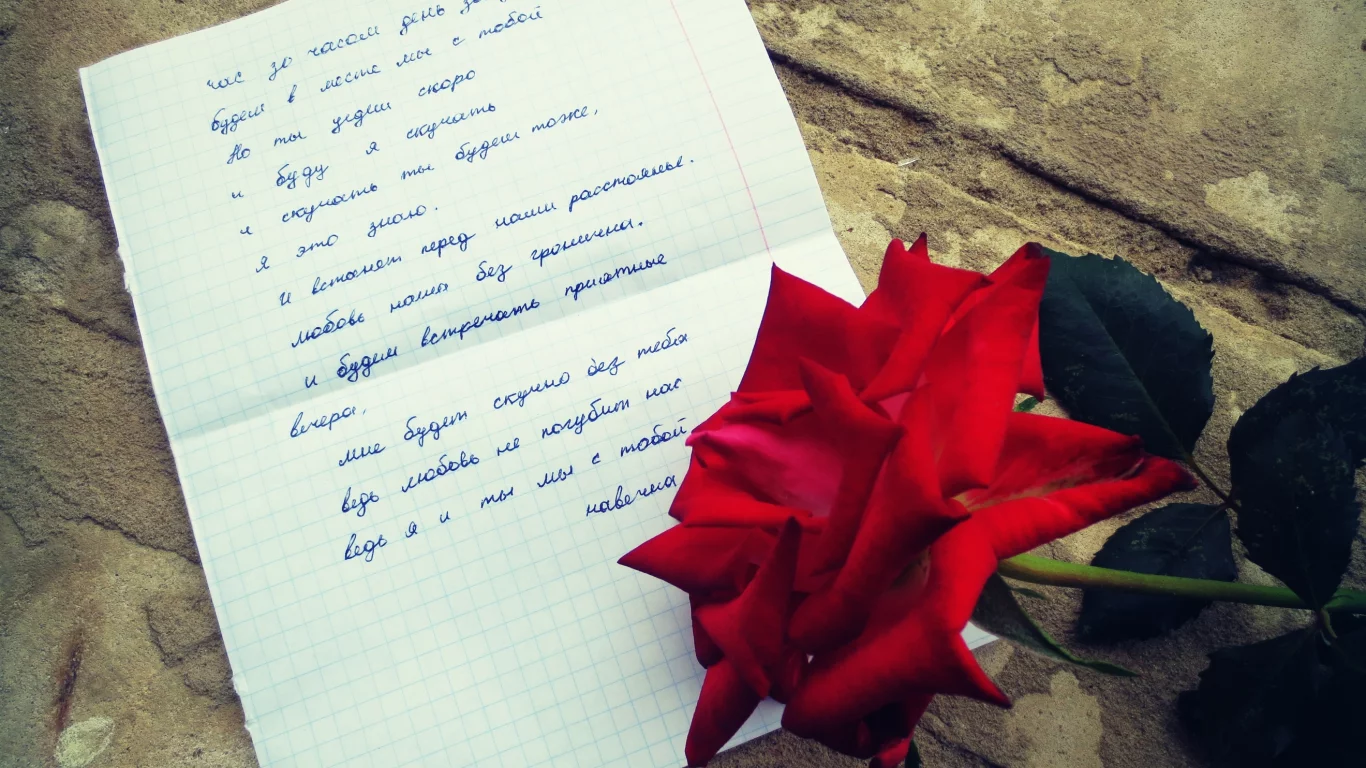 час за часом день за
будем в месте мы с тобой
Но ты уедеш скоро
и буду я скучать
и скучать ты будеш тоже,
я это знаю.
И встанет перед нами расстоянье.
любовь нашея без граничена.
и будем встречать приятные
вечера.
мне будет скучно без тебя
ведь любовь не погубит нас
ведь я и ты мы с тобой
навечна